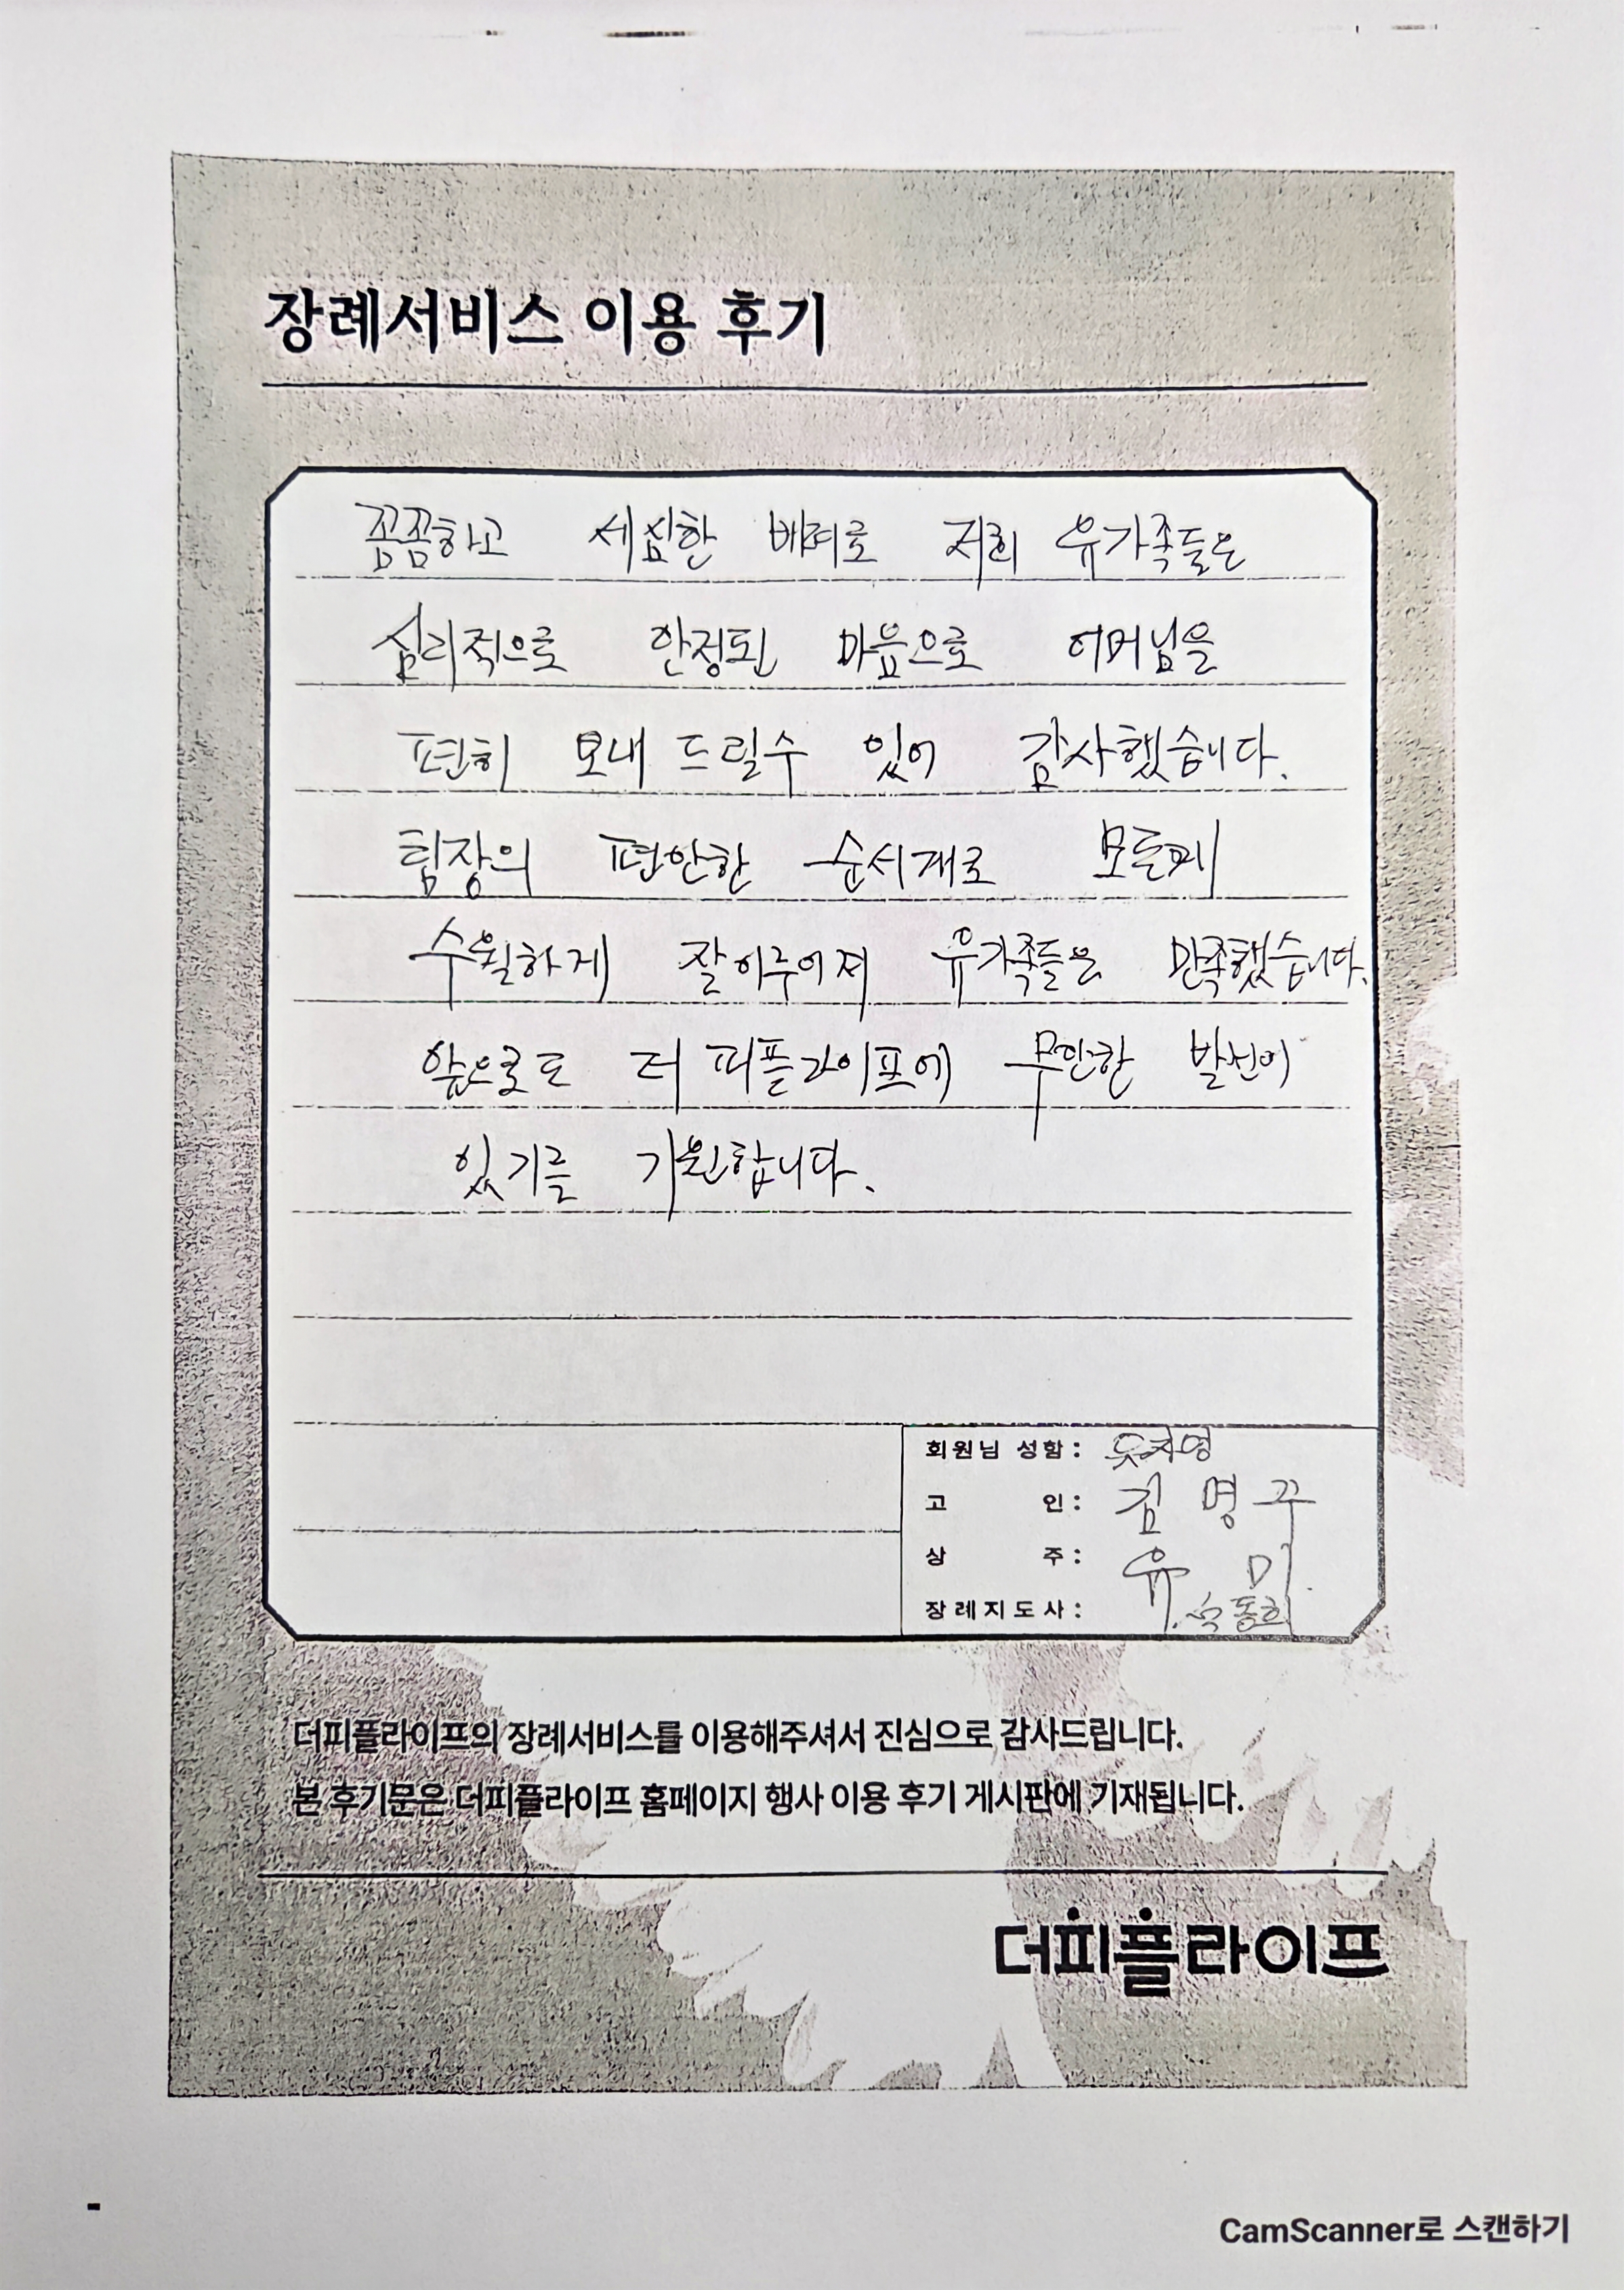 장례서비스 이용 후기
꼼꼼하고 세심한 배려로 저희 유가족들은
심리적으로 안정된 마음으로 어머님을
편히 보내 드릴수 있어 감사했습니다.
팀장의 편안한 순서대로 모든게
수월하게 잘이루어져 유가족들은 만족했습니다.
앞으로도 더 피플라이프에 무한한 발전이
있기를 기원합니다.
회원님 성함 :
고 인 : 김 명
상 주 : 유 미
장례지도사 : 동희
더피플라이프의 장례서비스를 이용해주셔서 진심으로 감사드립니다.
본 후기문은 더피플라이프 홈페이지 행사 이용 후기 게시판에 기재됩니다.
더피플라이프
CamScanner로 스캔하기